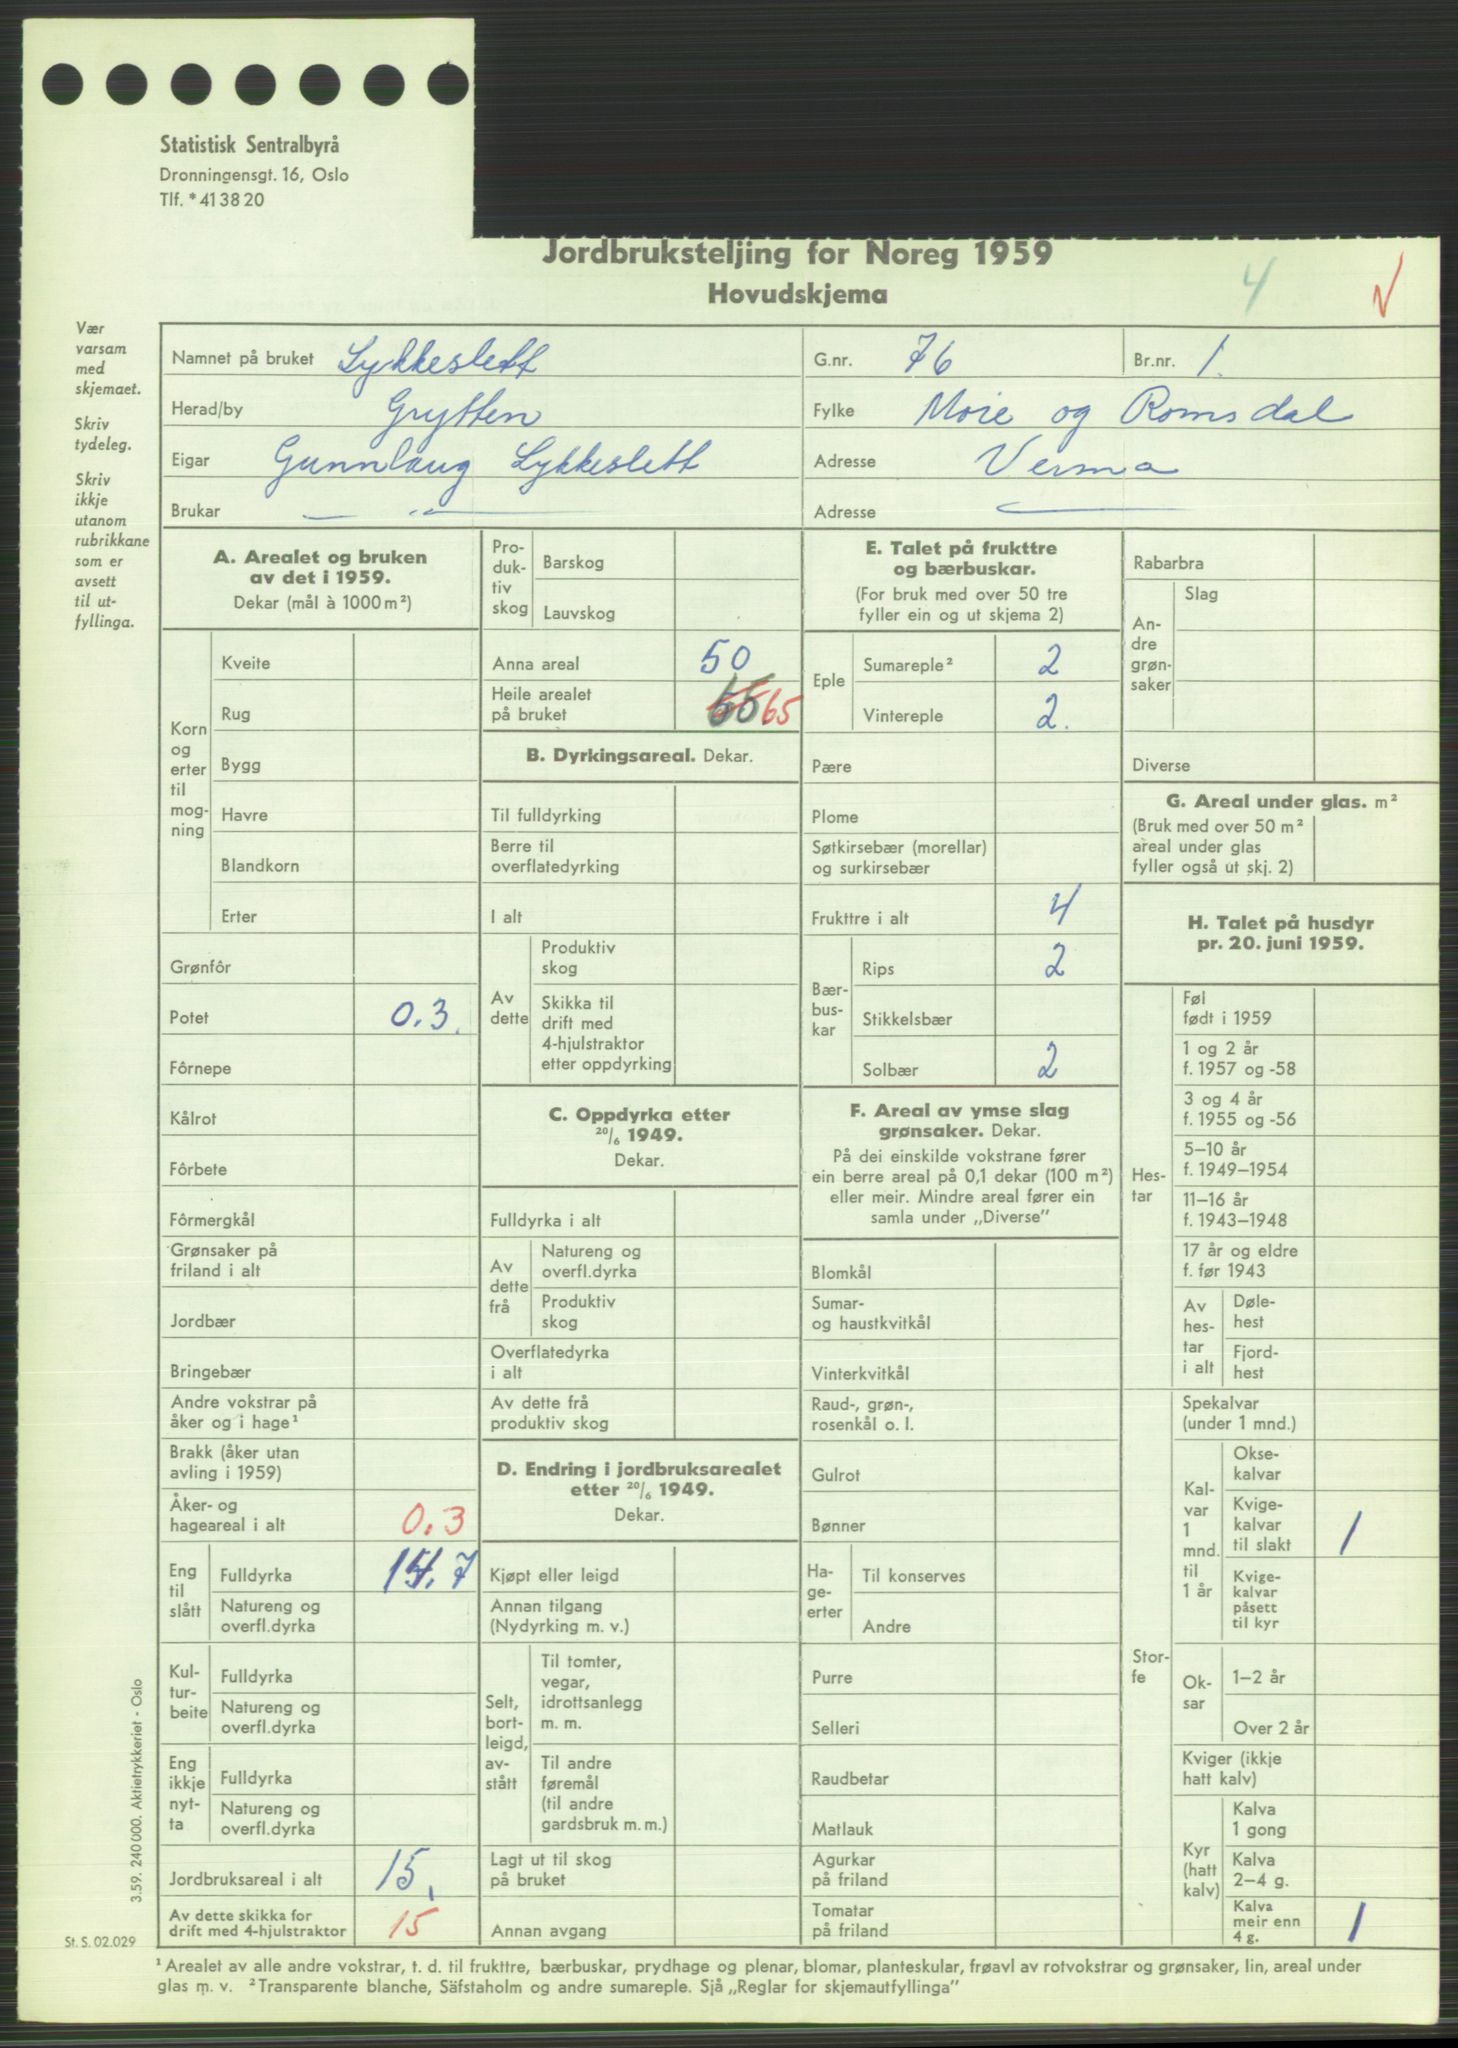 Statistisk Sentralbyrå
Dronningensgt. 16, Oslo
Tlf. * 41 38 20
Jordbruksteljing for Noreg 1959
Hovudskjema
4
Vær
varsam
med
skjemaet.
Skriv
tydeleg.
Skriv
ikkje
utanom
rubrikkane
som er
avsett
til ut-
fyllinga.
Namnet på bruket Lykkeslett
G.nr. 76
Br.nr. 1.
Herad/by Grytten
Fylke Møre og Romsdal
Eigar Gunnlaug Lykkeslett
Adresse Verma
Brukar — " —
Adresse
A. Arealet og bruken
av det i 1959.
Dekar (mål à 1000 m²)
Korn
og
erter
til
mog-
ning
Kveite
Rug
Bygg
Havre
Blandkorn
Erter
Grønfôr
Potet 0.3.
Fôrnepe
Kålrot
Fôrbete
Fôrmergkål
Grønsaker på
friland i alt
Jordbær
Bringebær
Andre vokstrar på
åker og i hage¹
Brakk (åker utan
avling i 1959)
Åker- og
hageareal i alt 0.3
Eng
til
slått
Fulldyrka 14.7
Natureng og
overfl.dyrka
Kul-
tur-
beite
Fulldyrka
Natureng og
overfl.dyrka
Eng
ikkje
nyt-
ta
Fulldyrka
Natureng og
overfl.dyrka
Jordbruksareal i alt 15.
Av dette skikka for
drift med 4-hjulstraktor 15
Pro-
duk-
tiv
skog
Barskog
Lauvskog
Anna areal 50
Heile arealet
på bruket 65
B. Dyrkingsareal. Dekar.
Til fulldyrking
Berre til
overflatedyrking
I alt
Av
dette
Produktiv
skog
Skikka til
drift med
4-hjulstraktor
etter oppdyrking
C. Oppdyrka etter
20/6 1949.
Dekar.
Fulldyrka i alt
Av
dette
frå
Natureng og
overfl.dyrka
Produktiv
skog
Overflatedyrka
i alt
Av dette frå
produktiv skog
D. Endring i jordbruksarealet
etter 20/6 1949.
Dekar.
Kjøpt eller leigd
Annan tilgang
(Nydyrking m. v.)
Selt,
bort-
leigd,
av-
stått
Til tomter,
vegar,
idrottsanlegg
m. m.
Til andre
føremål
(til andre
gardsbruk m. m.)
Lagt ut til skog
på bruket
Annan avgang
E. Talet på frukttre
og bærbuskar.
(For bruk med over 50 tre
fyller ein og ut skjema 2)
Eple
Sumareple² 2
Vintereple 2.
Pære
Plome
Søtkirsebær (morellar)
og surkirsebær
Frukttre i alt 4
Bær-
bus-
kar
Rips 2
Stikkelsbær
Solbær 2
F. Areal av ymse slag
grønsaker. Dekar.
På dei einskilde vokstrane fører
ein berre areal på 0,1 dekar (100 m²)
eller meir. Mindre areal fører ein
samla under „Diverse”
Blomkål
Sumar-
og haustkvitkål
Vinterkvitkål
Raud-, grøn-,
rosenkål o. l.
Gulrot
Bønner
Ha-
ge-
erter
Til konserves
Andre
Purre
Selleri
Raudbetar
Matlauk
Agurkar
på friland
Tomatar
på friland
Rabarbra
An-
dre
grøn-
saker
Slag
Diverse
G. Areal under glas. m²
(Bruk med over 50 m²
areal under glas
fyller også ut skj. 2)
H. Talet på husdyr
pr. 20. juni 1959.
Hes-
tar
Føl
født i 1959
1 og 2 år
f. 1957 og -58
3 og 4 år
f. 1955 og -56
5–10 år
f. 1949–1954
11–16 år
f. 1943–1948
17 år og eldre
f. før 1943
Av
hes-
tar
i alt
Døle-
hest
Fjord-
hest
Stor-
fe
Spekalvar
(under 1 mnd.)
Kal-
var
1
mnd.
til
1 år
Okse-
kalvar
Kvige-
kalvar
til slakt 1
Kvige-
kalvar
påsett
til kyr
Ok-
sar
1–2 år
Over 2 år
Kviger (ikkje
hatt kalv)
Kyr
(hatt
kalv)
Kalva
1 gong
Kalva
2–4 g.
Kalva
meir enn
4 g. 1
3.59. 240 000. Aktietrykkeriet - Oslo
St. S. 02.029
¹ Arealet av alle andre vokstrar, t. d. til frukttre, bærbuskar, prydhage og plenar, blomar, planteskular, frøavl av rotvokstrar og grønsaker, lin, areal under
glas m. v. ² Transparente blanche, Säfstaholm og andre sumareple. Sjå „Reglar for skjemautfyllinga”